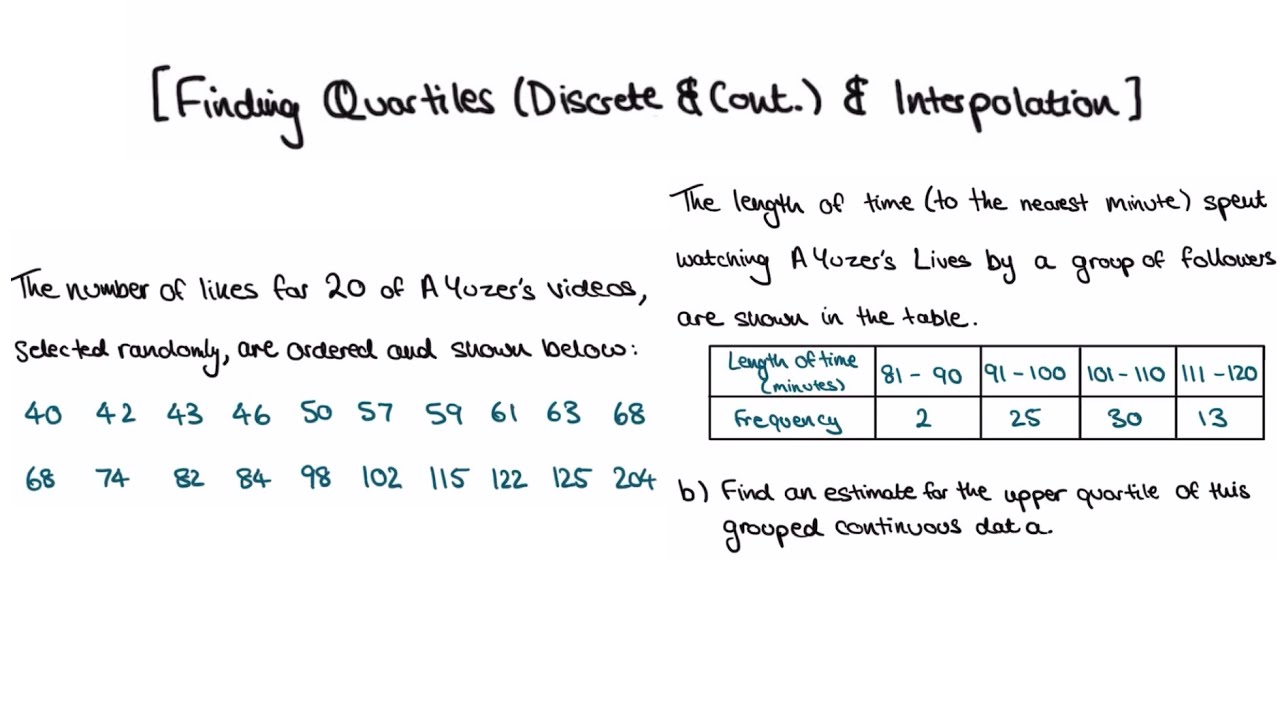 [Finding Quartiles (Discrete & Cont.) & Interpolation]
The number of likes for 20 of A Yuzer's videos,
selected randomly, are ordered and shown below:
40 42 43 46 50 57 59 61 63 68
68 74 82 84 98 102 115 122 125 204
The length of time (to the nearest minute) spent
watching A Yuzer's Lives by a group of followers
are shown in the table.
Length of time (minutes) 81 - 90 91 - 100 101 - 110 111 - 120
Frequency 2 25 30 13
b) Find an estimate for the upper quartile of this
grouped continuous data.